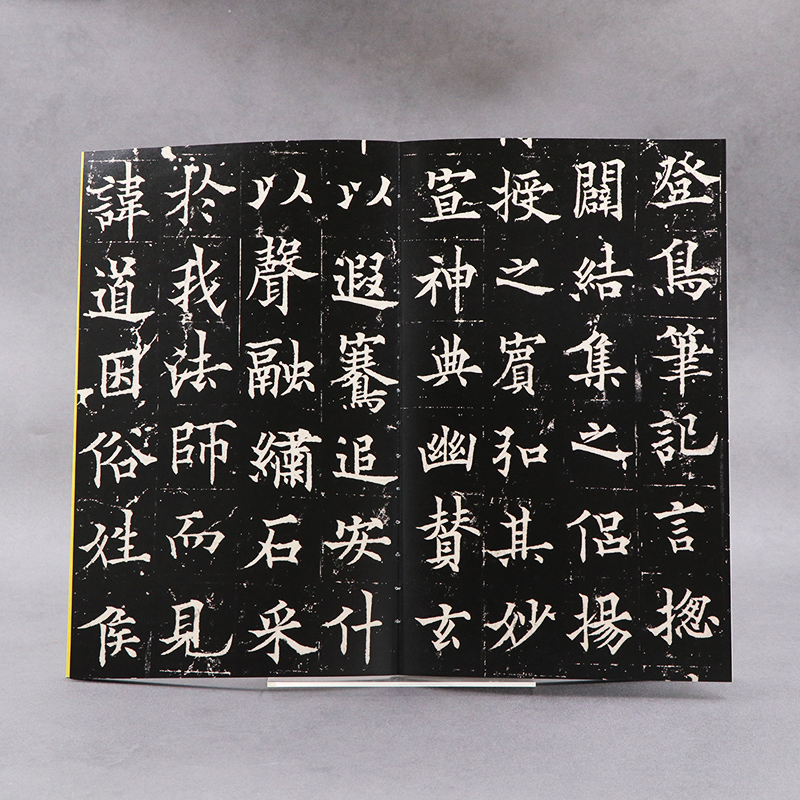 登鳥筆記言揔
闢結集之侶揚
授之賔弘其妙
宣神典幽賛玄
以遐騫追安什
以聲融繡石采
於我法師而見
諱道因俗姓侯